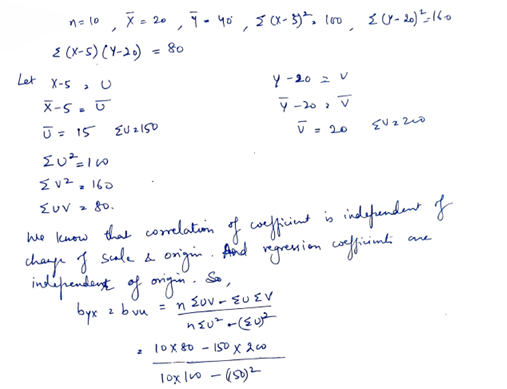 n=10 , X̄ = 20 , Ȳ = 40 , Σ(X-5)² = 100 , Σ(Y-20)² = 160
Σ(X-5)(Y-20) = 80
Let X-5 = U Y-20 = V
X̄-5 = Ū Ȳ-20 = V̄
Ū = 15 ΣU=150 V̄ = 20 ΣV=200
ΣU² = 100
ΣV² = 160
ΣUV = 80.
We know that correlation of coefficient is independent of
change of scale & origin. And regression coefficients are
independent of origin. So,
byx = bvu = nΣUV - ΣUΣV / nΣU² - (ΣU)²
= 10×80 - 150×200 / 10×100 - (150)²